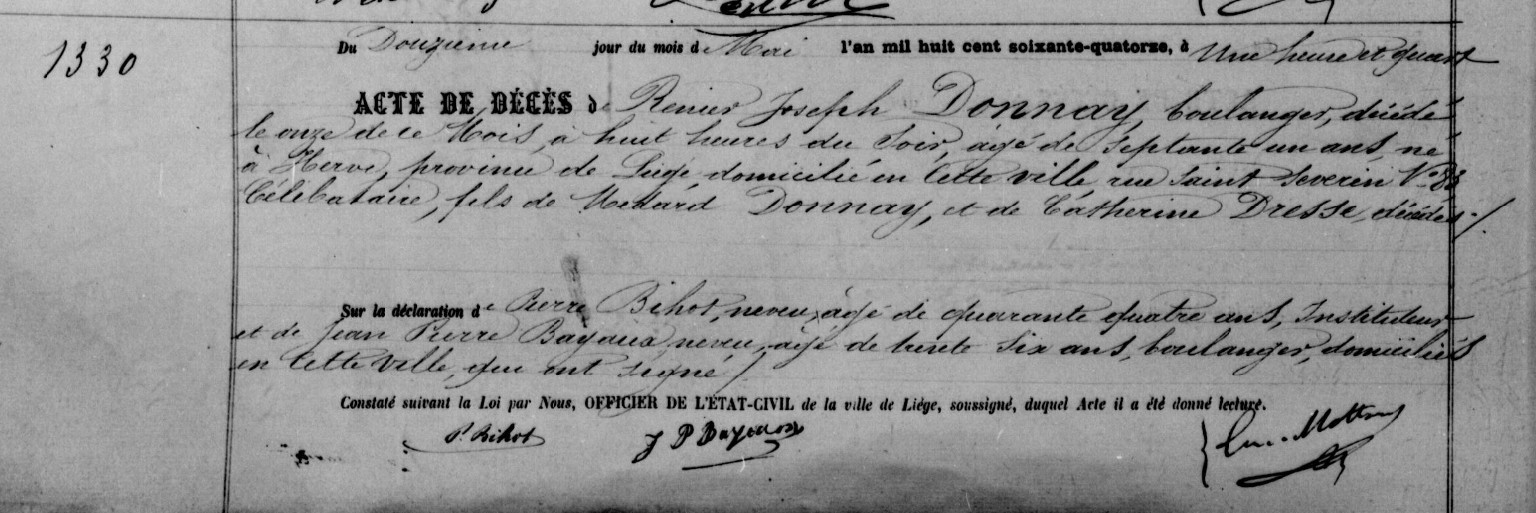 1330
Du Douzième jour du mois de Mai l'an mil huit cent soixante-quatorze, à Une heure et quart
ACTE DE DÉCÈS de Renier Joseph Donnay, boulanger, décédé
le onze de ce Mois, à huit heures du Soir, âgé de Septante un ans, né
à Herve, province de Liége, domicilié en Cette ville, rue Saint Severin N° 83
Célibataire, fils de Menard Donnay, et de Catherine Dresse, décédés./.
Sur la déclaration de Pierre Bihot, neveu, âgé de quarante quatre ans, Instituteur
et de Jean Pierre Bayaux, neveu, âgé de trente Six ans, boulanger, domiciliés
en Cette Ville, qui ont signé /.
Constaté suivant la Loi par Nous, OFFICIER DE L'ÉTAT-CIVIL de la ville de Liége, soussigné, duquel Acte il a été donné lecture.
P. Bihot J P Bayaux